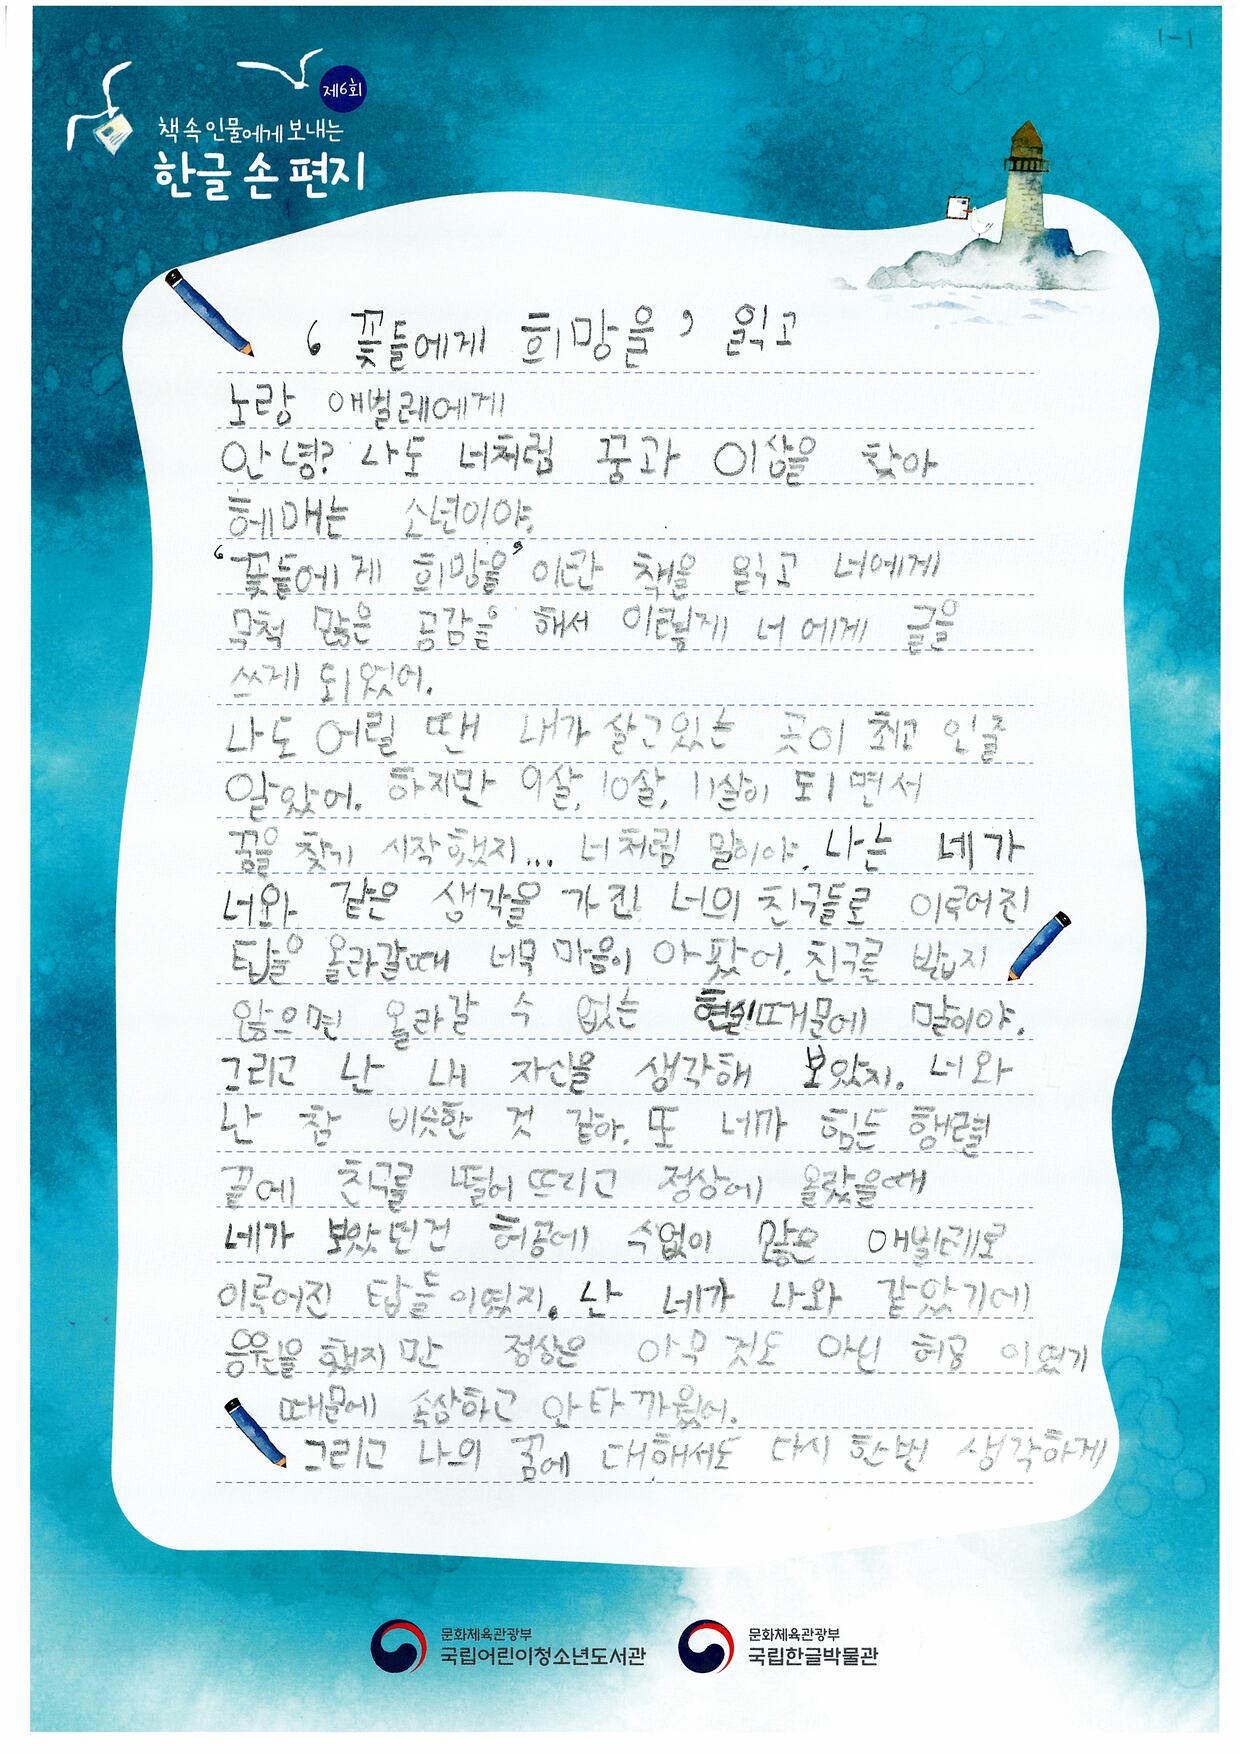 1-1
제6회
책 속 인물에게 보내는
한글 손 편지
‘꽃들에게 희망을’ 읽고
노랑 애벌레에게
안녕? 나도 너처럼 꿈과 이상을 찾아
헤매는 소년이야.
‘꽃들에게 희망을’이란 책을 읽고 너에게
무척 많은 공감을 해서 이렇게 너에게 글을
쓰게 되었어.
나도 어릴 땐 내가 살고있는 곳이 최고 인줄
알았어. 하지만 9살, 10살, 11살이 되면서
꿈을 찾기 시작했지... 너처럼 말이야. 나는 네가
너와 같은 생각을 가진 너의 친구들로 이루어진
탑을 올라갈때 너무 마음이 아팠어. 친구를 밟지
않으면 올라갈 수 없는 현실때문에 말이야.
그리고 난 내 자신을 생각해 보았지. 너와
난 참 비슷한 것 같아. 또 네가 힘든 행렬
끝에 친구를 떨어뜨리고 정상에 올랐을때
네가 보았던건 허공에 수없이 많은 애벌레로
이루어진 탑들이였지. 난 네가 나와 같았기에
응원을 했지만 정상은 아무것도 아닌 허공 이였기
때문에 속상하고 안타까웠어.
그리고 나의 꿈에 대해서도 다시 한번 생각하게
문화체육관광부
국립어린이청소년도서관
문화체육관광부
국립한글박물관